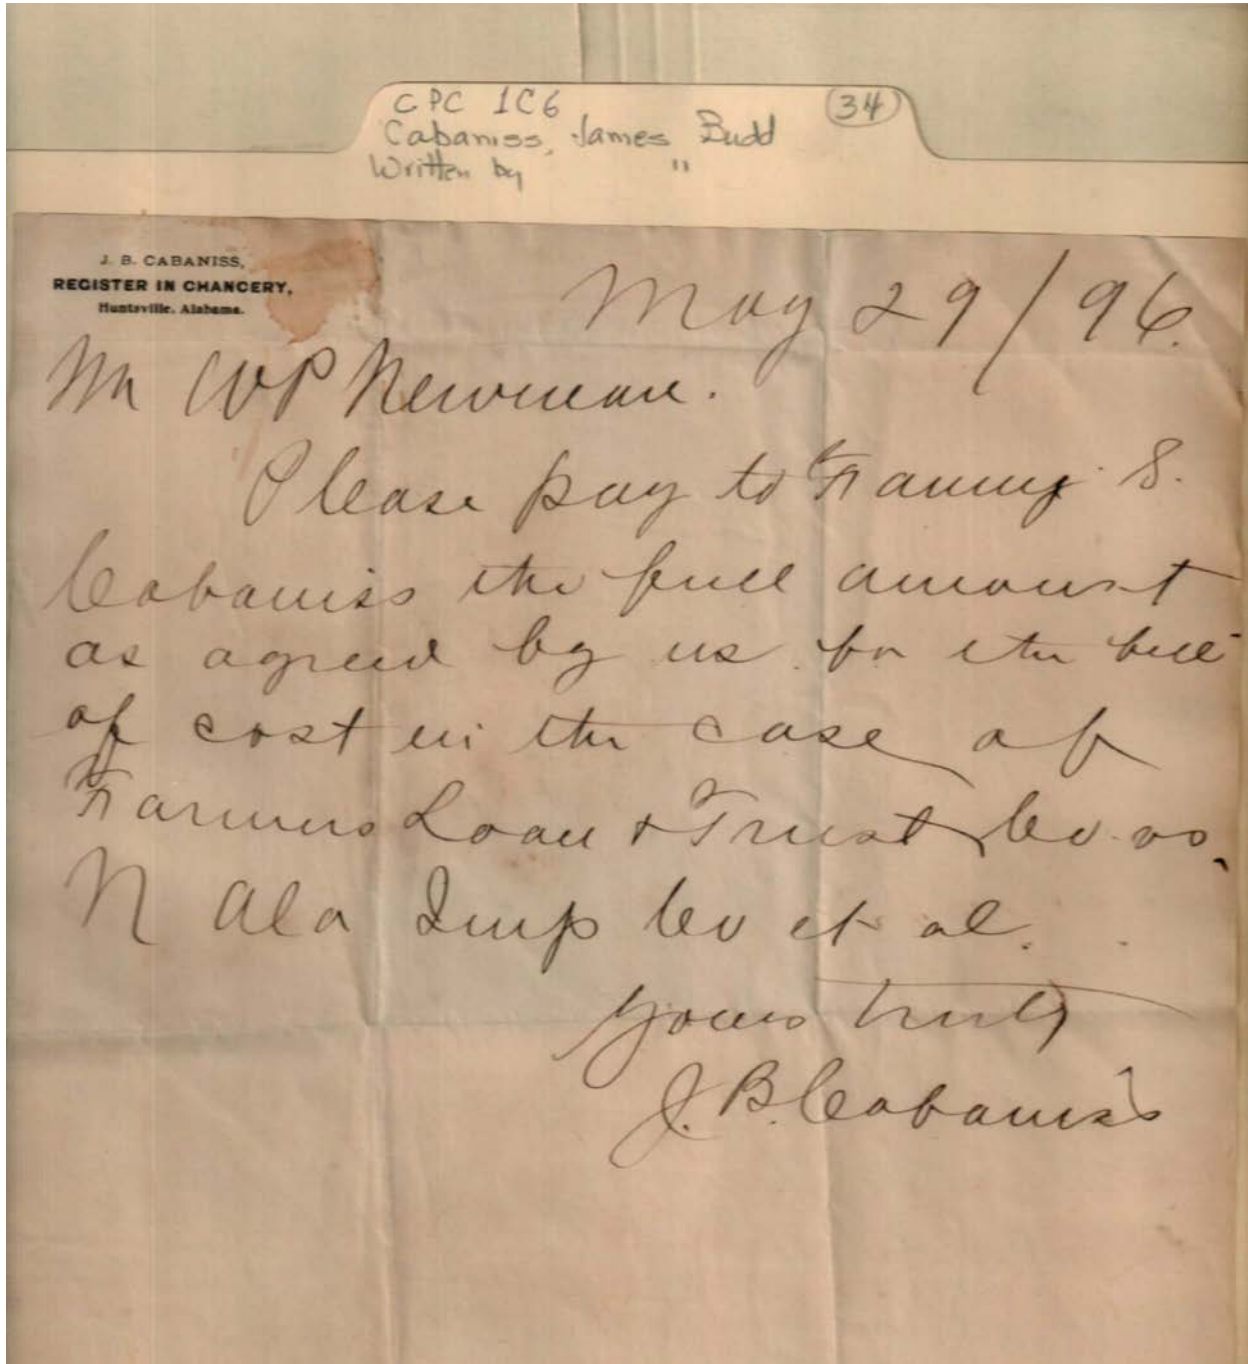 CPC 1C6
34
Cabaniss, James Budd
Written by "
J. B. CABANISS,
REGISTER IN CHANCERY,
Huntsville, Alabama.
May 29/96.
Mr WP Newman.
Please pay to Fanny S.
Cabaniss the full amount
as agreed by us for the bill
of cost in the case of
Farmers Loan & Trust Co. vs.
N Ala Imp Co et al.
Yours truly
J. B. Cabaniss